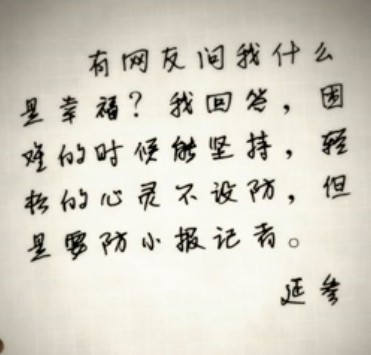 有网友问我什么
是幸福？我回答，困
难的时候能坚持，轻
松的心灵不设防，但
是要防小报记者。
延参